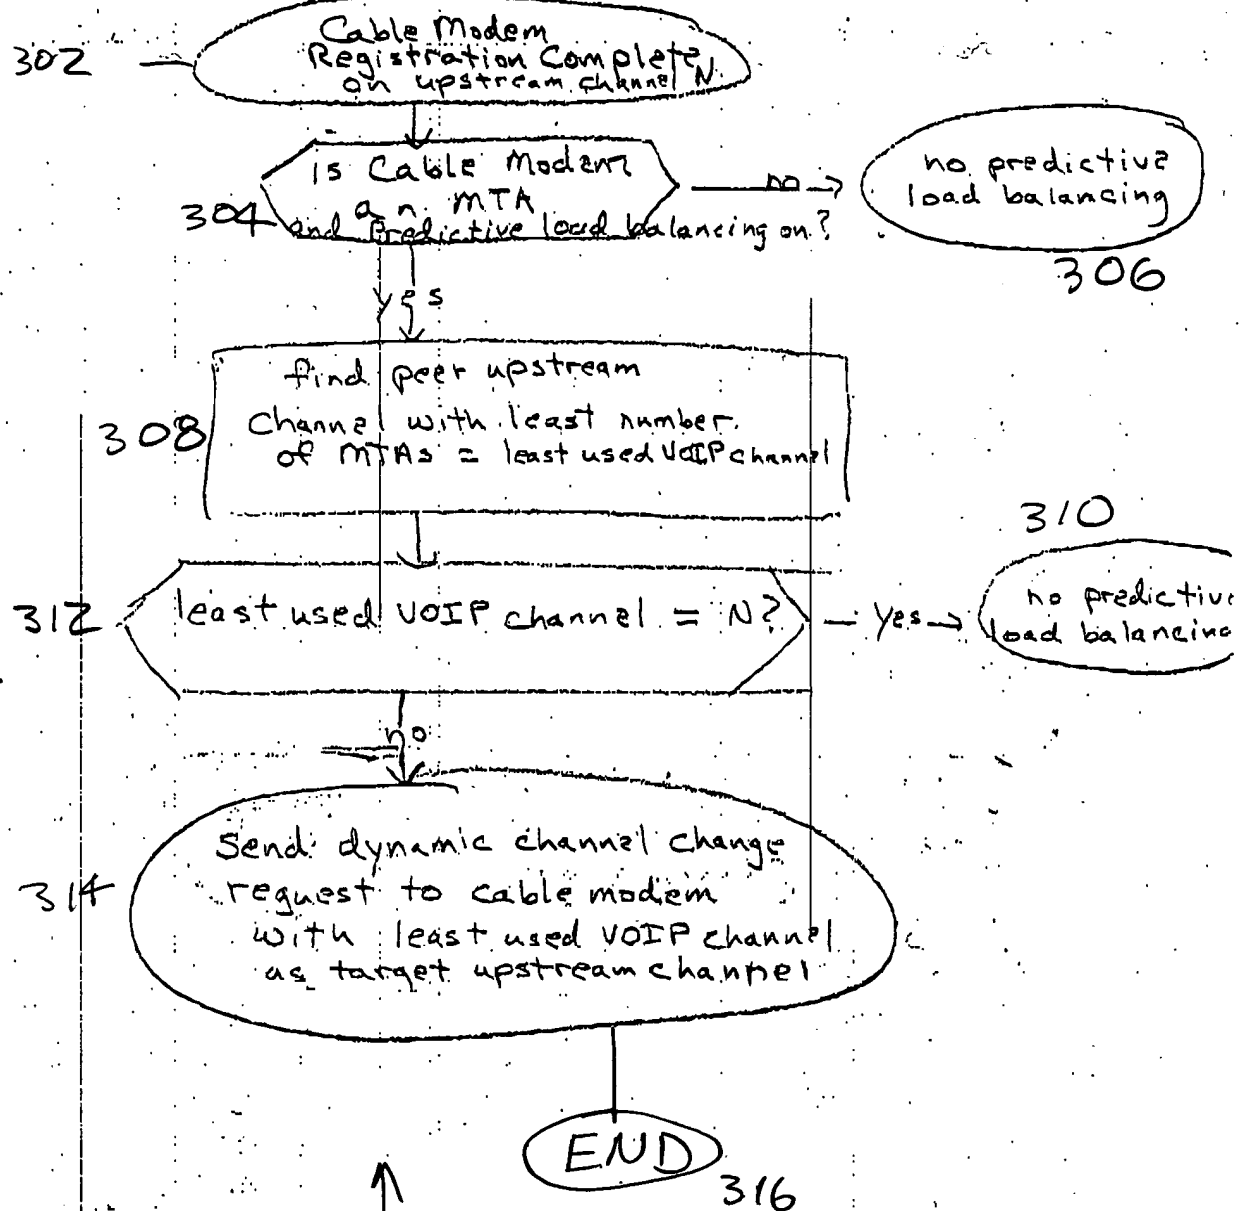 302
Cable Modem
Registration Complete
on upstream channel N
is Cable Modem
an MTA
304
and Predictive load balancing on?
no
no predictive
load balancing
306
yes
find peer upstream
308
Channel with least number
of MTAs = least used VOIP channel
310
312
least used VOIP channel = N?
yes
no predictive
load balancing
no
Send dynamic channel change
314
request to cable modem
with least used VOIP channel
as target upstream channel
END
316